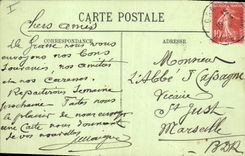 I
CARTE POSTALE
chers amis
CORRESPONDANCE
ADRESSE
De Grasse nous vous
envoyons nos bons
souvenirs, nos amitiés
et nos caresses.
Repartirons Semaine
prochaine - Faites nous
le plaisir de nous envoyer
une carte nous donnant
de vos nouvelles
Monsieur
L'Abbé
Vicaire
St Just
Marseille
B.D.R.
10